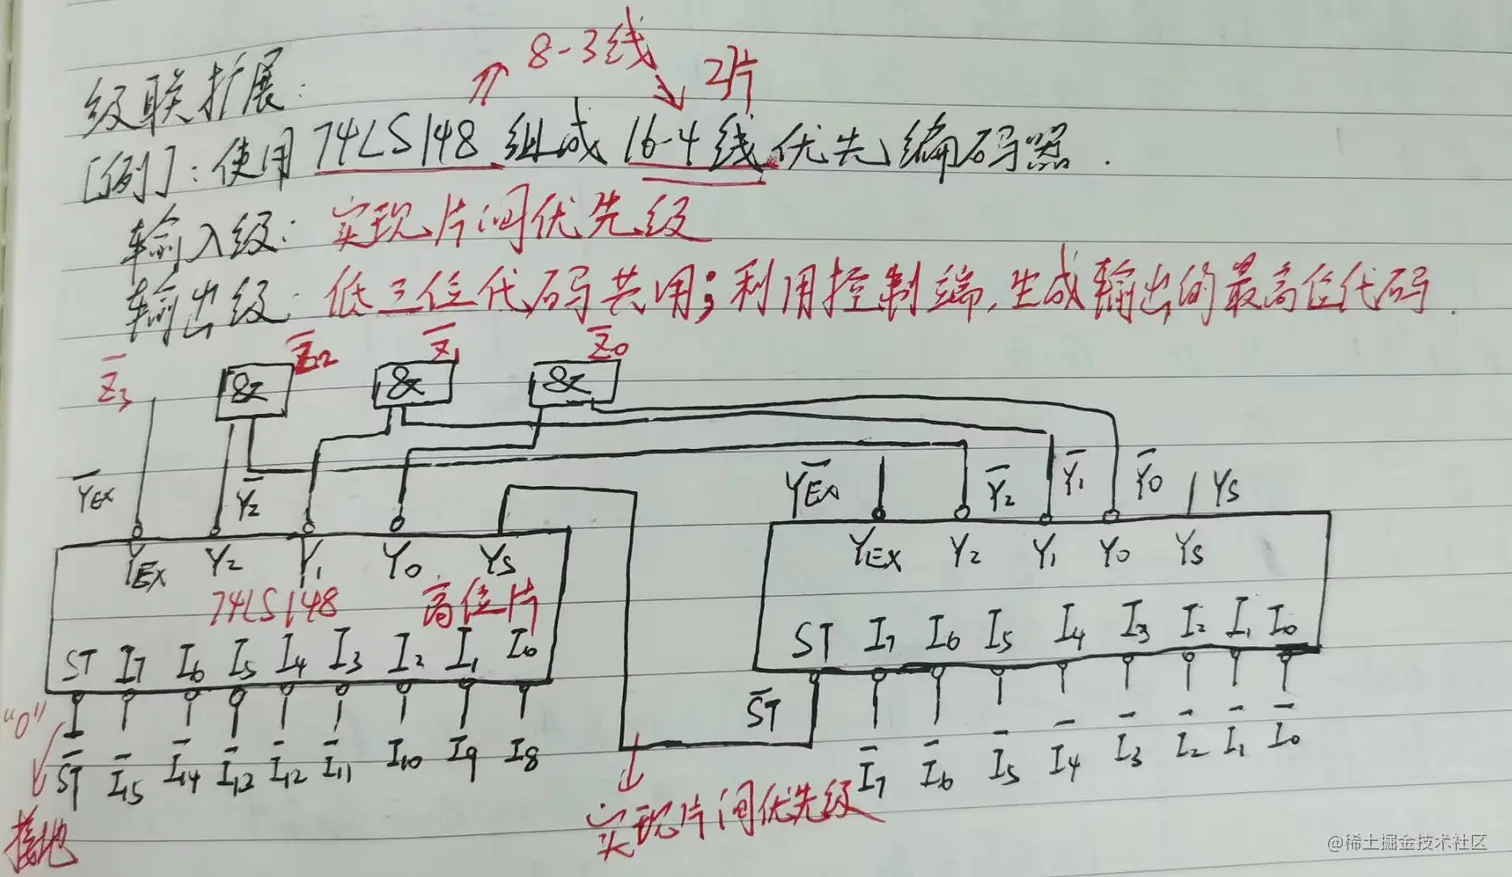 8-3线 2片
级联扩展:
[例]: 使用 74LS148 组成 16-4线 优先编码器.
输入级: 实现片间优先级
输出级: 低三位代码共用; 利用控制端, 生成输出的最高位代码.
Z̅3 Z̅2 Z̅1 Z̅0
& & &
Y̅EX Y̅2 Y̅EX Y̅2 Y̅1 Y̅0 YS
YEX Y2 Y1 Y0 YS YEX Y2 Y1 Y0 YS
74LS148 高位片
ST I7 I6 I5 I4 I3 I2 I1 I0 ST I7 I6 I5 I4 I3 I2 I1 I0
"0"
S̅T̅ I̅15 I̅14 I̅13 I̅12 I̅11 I̅10 I̅9 I̅8 S̅T̅ I̅7 I̅6 I̅5 I̅4 I̅3 I̅2 I̅1 I̅0
接地 实现片间优先级
@稀土掘金技术社区